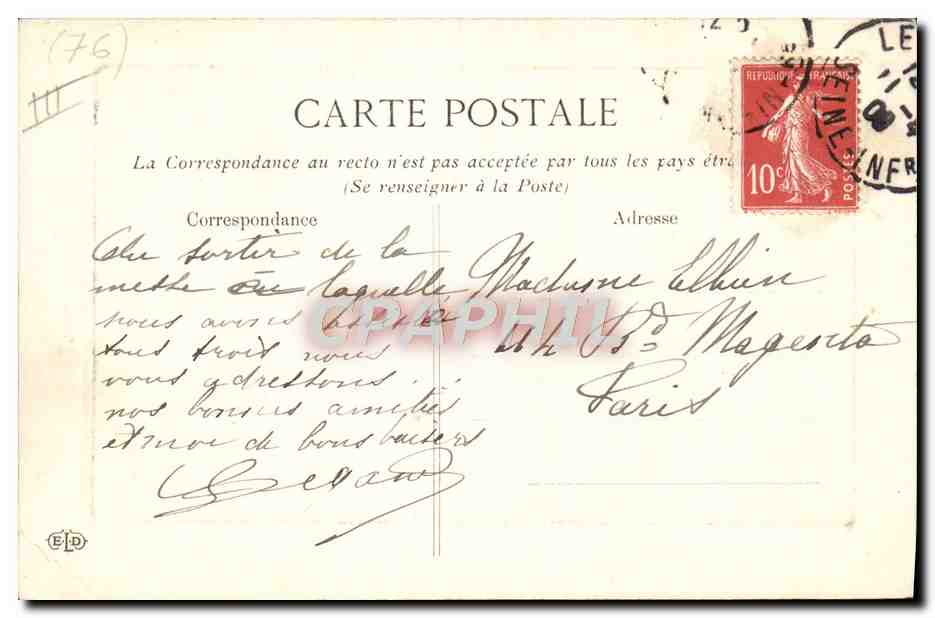 (76)
III
CARTE POSTALE
La Correspondance au recto n'est pas acceptée par tous les pays étra
(Se renseigner à la Poste)
REPUBLIQUE FRANÇAISE
10c
POSTES
LE
SEINE-INFRE
11
09
Correspondance
Adresse
Au sortir de la
messe laquelle
nous avons assisté
tous trois nous
vous adressons
nos bonnes amitiés
et moi de bons baisers
Madame
Bd Magenta
Paris
CPAPHIL
E.L.D